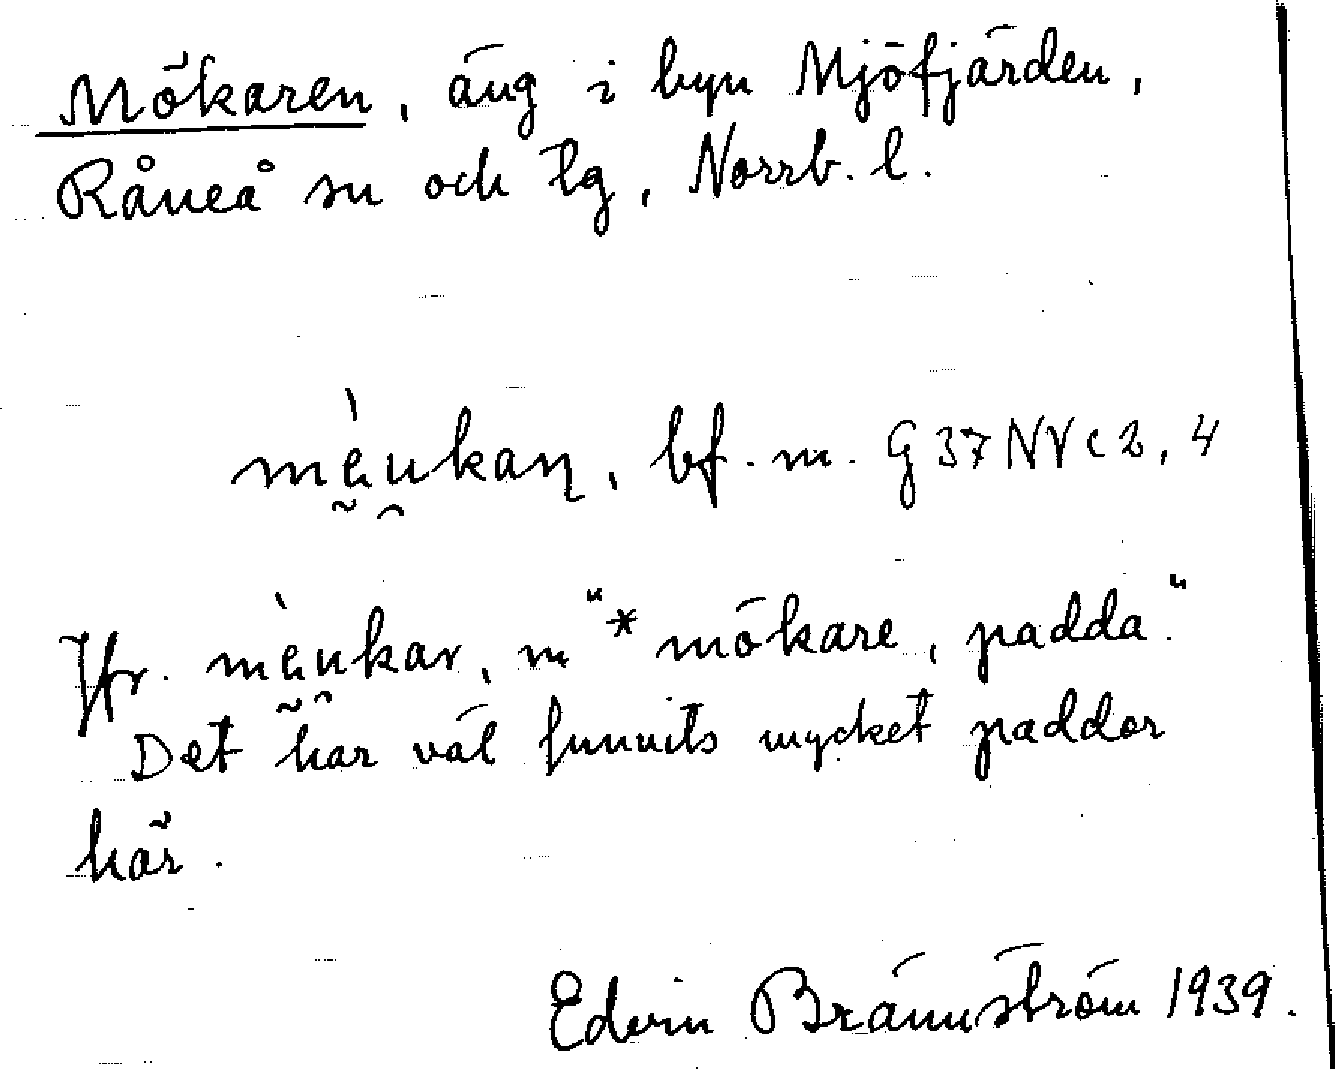 Mökaren, äng i byn Mjöfjärden,
Råneå sn och tg, Norrb. l.
mḛ̀ṷkaɳ, bf. m. G 37 NV c 2, 4
Jfr. mḛ̀ṷkar, m "*mökare, padda."
Det har väl funnits mycket paddor
här.
Edvin Brännström 1939.